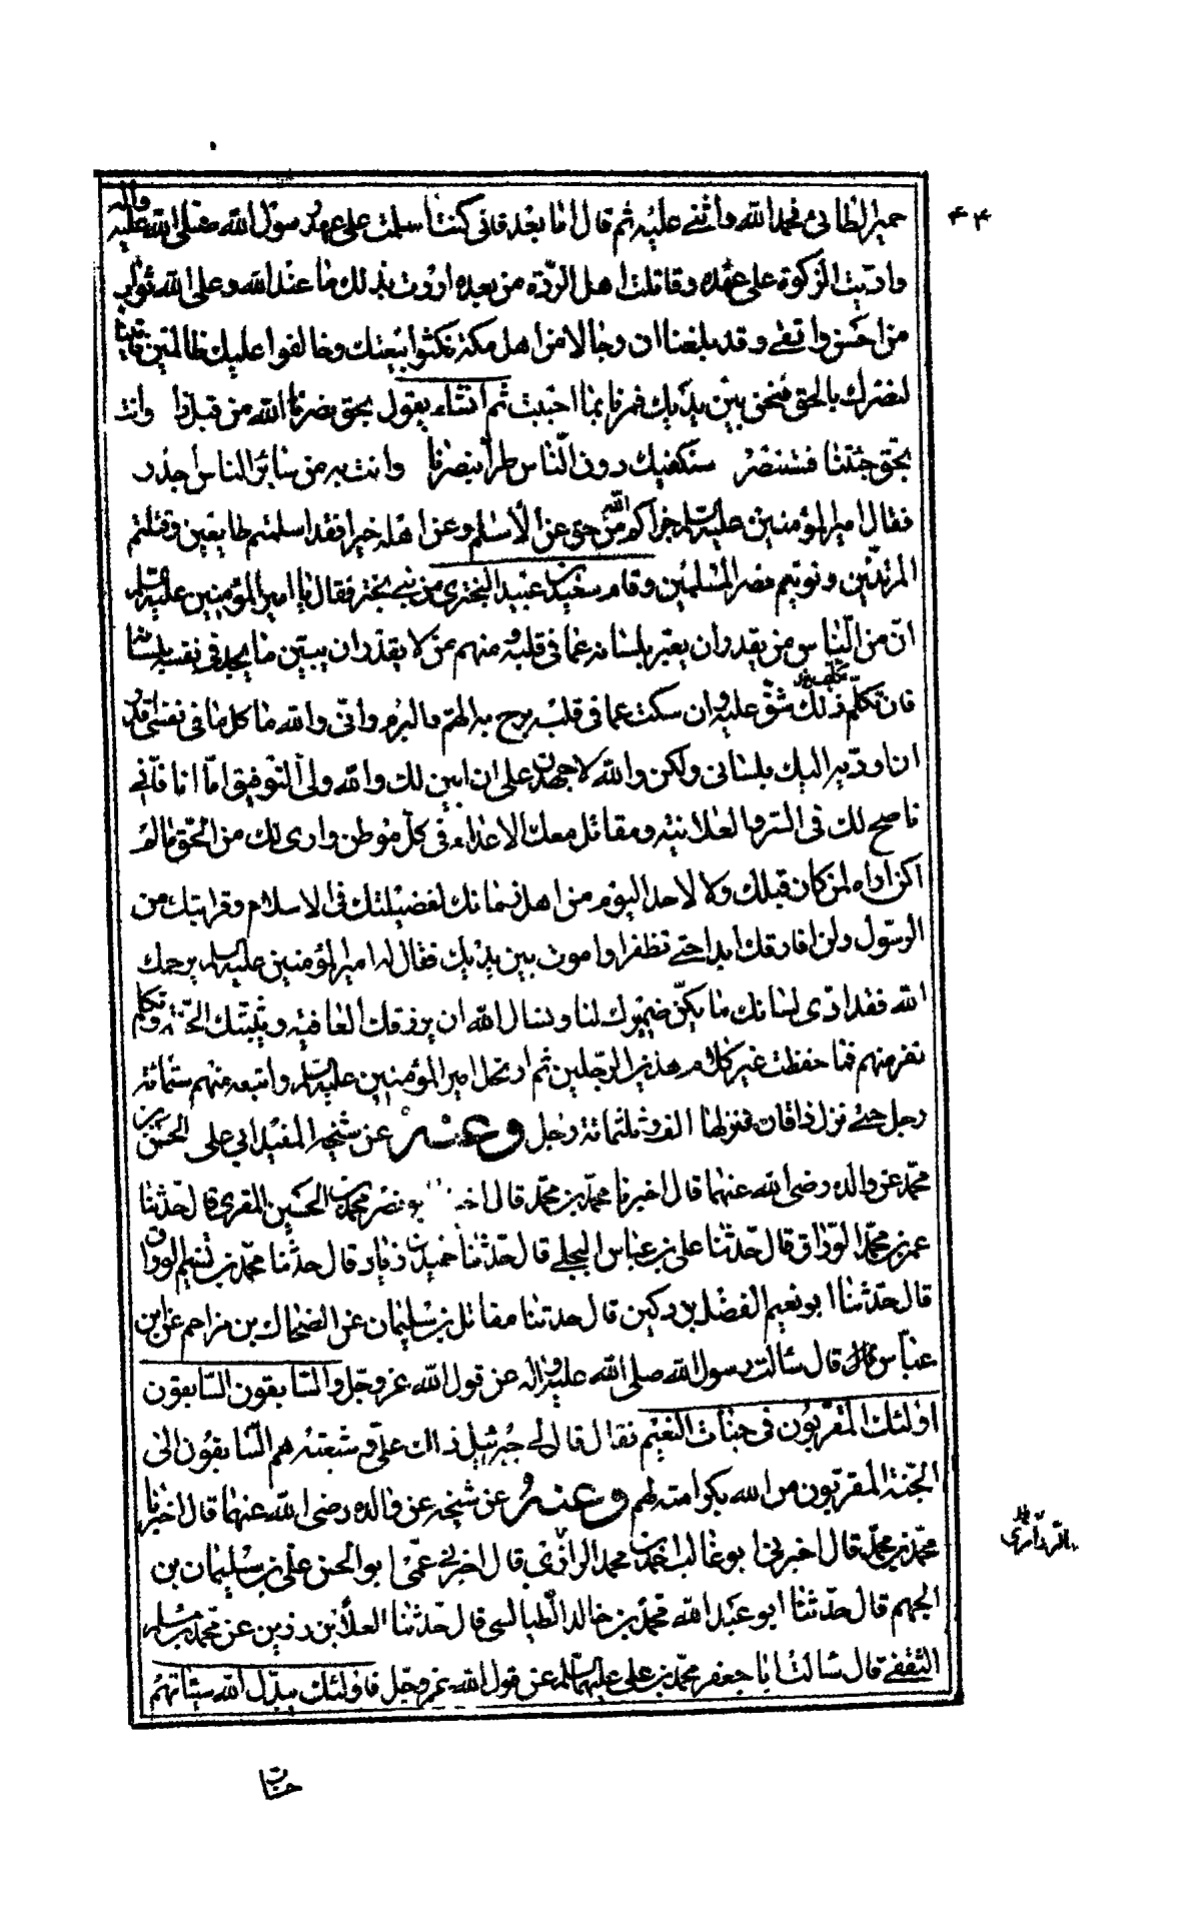 ۴۴
حمير الطائي فحمد الله واثنى عليه ثم قال اما بعد فاني كنت اسلمت على عهد رسول الله صلى الله عليه واله
واديت الزكوة على عهده وقاتلت اهل الردة من بعده اردت بذلك ما عند الله وعلى الله ثواب
من احسن واتقى وقد بلغنا ان رجالا من اهل مكة نكثوا بيعتك وخالفوا عليك ظالمين فاتينا
لنصرك بالحق فنحن بين يديك فمرنا بما احببت ثم انشاء يقول بحق نصرنا الله من قبل ذا وانت
بحق جئتنا فستنصر سنكفيك دون الناس طرا بنصرنا وانت به من سائر الناس اجدر
فقال امير المؤمنين عليه السلم جزاكم الله من حي عن الاسلم وعن اهله خيرا فقد اسلمتم طايعين وقتلتم
المرتدين ونويتم نصر المسلمين وقام سعيد بن عبيد البختري من بني بختر فقال يا امير المؤمنين عليه السلم
ان من الناس من يقدر ان يعبر بلسانه عما في قلبه ومنهم من لا يقدر ان يبين ما يجد في نفسه بلسانه
فان تكلف ذلك شق عليه وان سكت عما في قلبه برح به الهم والبرم واني والله ما كل ما في نفسي اقدر
ان اوديه اليك بلساني ولكن والله لاجهدن على ان ابين لك والله ولى التوفيق اما انا فاني
ناصح لك في السر والعلانية ومقاتل معك الاعداء في كل موطن وارى لك من الحق ما لم
اكن اراه لمن كان قبلك ولا لاحد اليوم من اهل زمانك لفضيلتك في الاسلام وقرابتك من
الرسول ولن افارقك ابدا حتى تظفر او اموت بين يديك فقال له امير المؤمنين عليه السلم يرحمك
الله فقد ادى لسانك ما يكن ضميرك لنا ونسال الله ان يرزقك العافية ويثيبك الجنة وتكلم
نفر منهم فما حفظت غير كلام هذين الرجلين ثم ارتحل امير المؤمنين عليه السلم واتبعه منهم ستمائة
رجل حتى نزل ذاقان فنزلها الف وثلثمائة رجل وعنه عن شيخه المفيد ابي على الحسن بن
محمد عن والده رضى الله عنهما قال اخبرنا محمد بن محمد قال ابو نصر محمد بن الحسين المقري قال حدثنا
عمر بن محمد الوراق قال حدثنا على بن عباس البجلي قال حدثنا حميد بن زياد قال حدثنا محمد بن تسنيم الوراق
قال حدثنا ابو نعيم الفضل بن دكين قال حدثنا مقاتل بن سليمان عن الضحاك بن مزاحم عن ابن
عباس قال سالت رسول الله صلى الله عليه واله عن قول الله عز وجل والسابقون السابقون
اولئك المقربون في جنات النعيم فقال قال لي جبرئيل ذاك على وشيعته هم السابقون الى
الجنة المقربون من الله بكرامته لهم وعنه عن شيخه عن والده رضى الله عنهما قال اخبرنا
محمد بن محمد قال اخبرني ابو غالب احمد بن محمد الرازي قال اخبرني عمي ابو الحسن على بن سليمان بن
الجهم قال حدثنا ابو عبد الله محمد بن خالد الطيالسي قال حدثنا العلا بن رزين عن محمد بن مسلم
الثقفي قال سالت ابا جعفر محمد بن على عليهما السلم عن قول الله عز وجل فاولئك يبدل الله سيئاتهم
حسنات